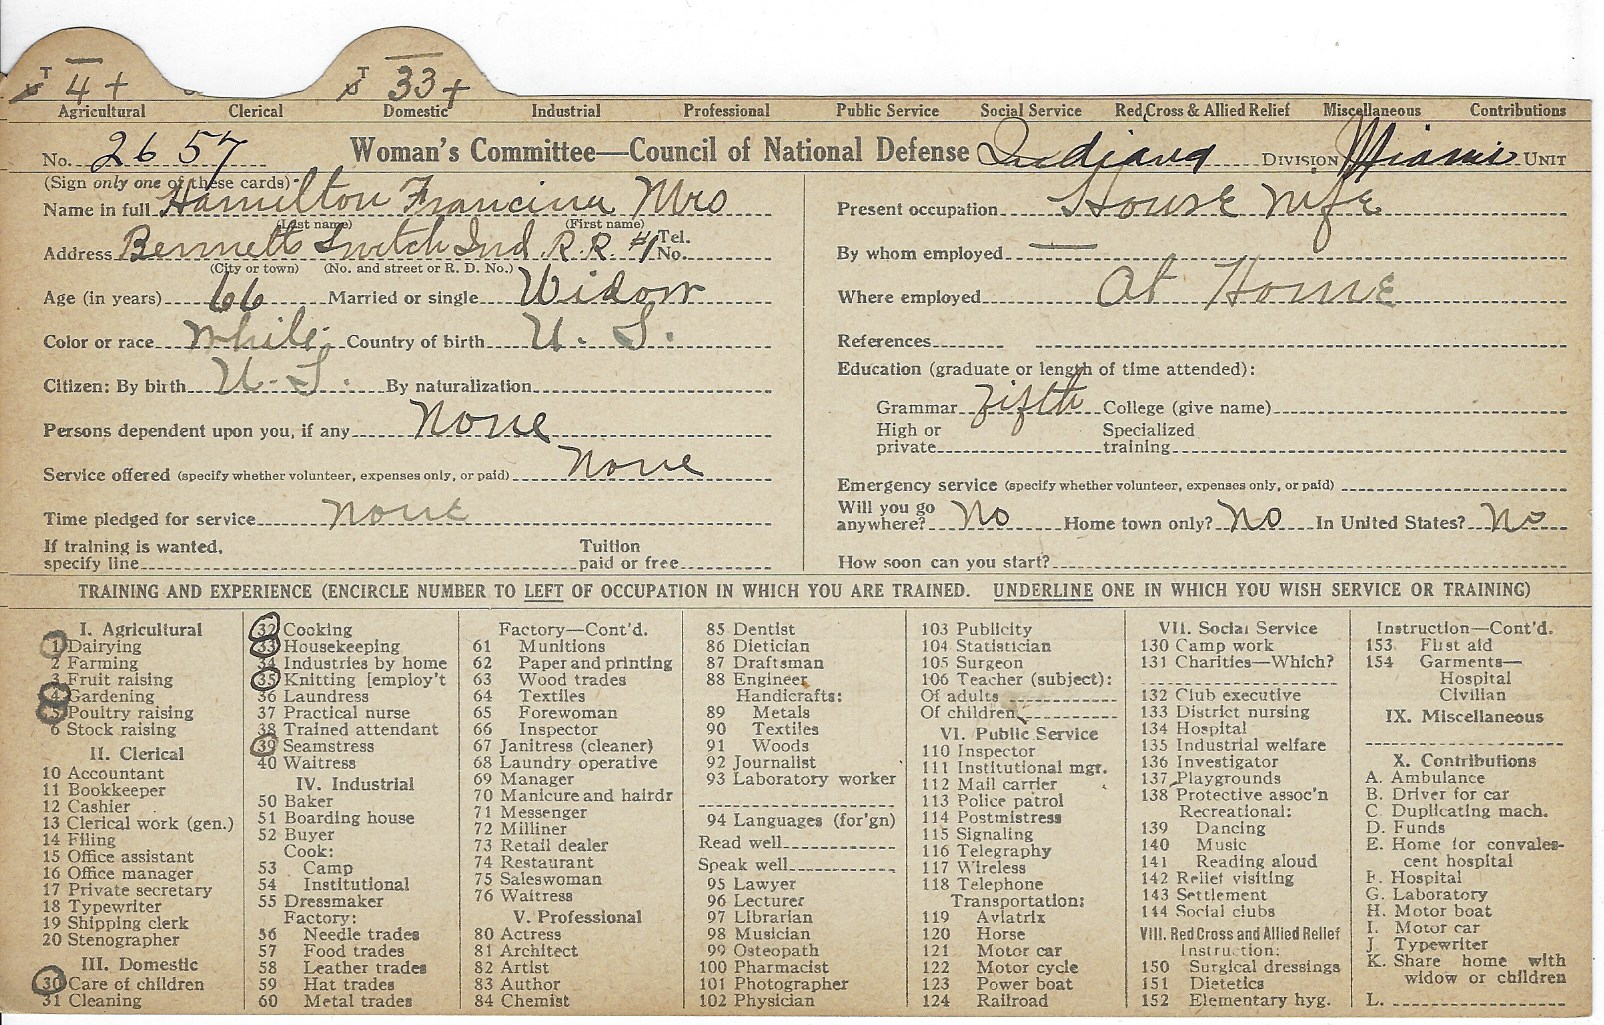 T 4 + T 33 +
Agricultural Clerical Domestic Industrial Professional Public Service Social Service Red Cross & Allied Relief Miscellaneous Contributions
No. 2657 Woman's Committee—Council of National Defense Indiana DIVISION Miami UNIT
(Sign only one of these cards)
Name in full Hamilton Francina Mrs
(Last name) (First name)
Address Bennetts Switch Ind R.R. #1 Tel. No.
(City or town) (No. and street or R. D. No.)
Age (in years) 66 Married or single Widow
Color or race White Country of birth U. S.
Citizen: By birth U.S. By naturalization
Persons dependent upon you, if any None
Service offered (specify whether volunteer, expenses only, or paid) None
Time pledged for service None
If training is wanted, specify line Tuition paid or free
Present occupation House wife
By whom employed —
Where employed At Home
References
Education (graduate or length of time attended):
Grammar Fifth College (give name)
High or private Specialized training
Emergency service (specify whether volunteer, expenses only, or paid)
Will you go anywhere? No Home town only? No In United States? No
How soon can you start?
TRAINING AND EXPERIENCE (ENCIRCLE NUMBER TO LEFT OF OCCUPATION IN WHICH YOU ARE TRAINED. UNDERLINE ONE IN WHICH YOU WISH SERVICE OR TRAINING)
I. Agricultural
1 Dairying
2 Farming
3 Fruit raising
4 Gardening
5 Poultry raising
6 Stock raising
II. Clerical
10 Accountant
11 Bookkeeper
12 Cashier
13 Clerical work (gen.)
14 Filing
15 Office assistant
16 Office manager
17 Private secretary
18 Typewriter
19 Shipping clerk
20 Stenographer
III. Domestic
30 Care of children
31 Cleaning
32 Cooking
33 Housekeeping
34 Industries by home
35 Knitting [employ't
36 Laundress
37 Practical nurse
38 Trained attendant
39 Seamstress
40 Waitress
IV. Industrial
50 Baker
51 Boarding house
52 Buyer
Cook:
53 Camp
54 Institutional
55 Dressmaker
Factory:
56 Needle trades
57 Food trades
58 Leather trades
59 Hat trades
60 Metal trades
Factory—Cont'd.
61 Munitions
62 Paper and printing
63 Wood trades
64 Textiles
65 Forewoman
66 Inspector
67 Janitress (cleaner)
68 Laundry operative
69 Manager
70 Manicure and hairdr
71 Messenger
72 Milliner
73 Retail dealer
74 Restaurant
75 Saleswoman
76 Waitress
V. Professional
80 Actress
81 Architect
82 Artist
83 Author
84 Chemist
85 Dentist
86 Dietician
87 Draftsman
88 Engineer
Handicrafts:
89 Metals
90 Textiles
91 Woods
92 Journalist
93 Laboratory worker
94 Languages (for'gn)
Read well
Speak well
95 Lawyer
96 Lecturer
97 Librarian
98 Musician
99 Osteopath
100 Pharmacist
101 Photographer
102 Physician
103 Publicity
104 Statistician
105 Surgeon
106 Teacher (subject):
Of adults
Of children
VI. Public Service
110 Inspector
111 Institutional mgr.
112 Mail carrier
113 Police patrol
114 Postmistress
115 Signaling
116 Telegraphy
117 Wireless
118 Telephone
Transportation:
119 Aviatrix
120 Horse
121 Motor car
122 Motor cycle
123 Power boat
124 Railroad
VII. Social Service
130 Camp work
131 Charities—Which?
132 Club executive
133 District nursing
134 Hospital
135 Industrial welfare
136 Investigator
137 Playgrounds
138 Protective assoc'n
Recreational:
139 Dancing
140 Music
141 Reading aloud
142 Relief visiting
143 Settlement
144 Social clubs
VIII. Red Cross and Allied Relief
Instruction:
150 Surgical dressings
151 Dietetics
152 Elementary hyg.
Instruction—Cont'd.
153 First aid
154 Garments—
Hospital
Civilian
IX. Miscellaneous
X. Contributions
A. Ambulance
B. Driver for car
C. Duplicating mach.
D. Funds
E. Home for convales-
cent hospital
F. Hospital
G. Laboratory
H. Motor boat
I. Motor car
J. Typewriter
K. Share home with
widow or children
L.